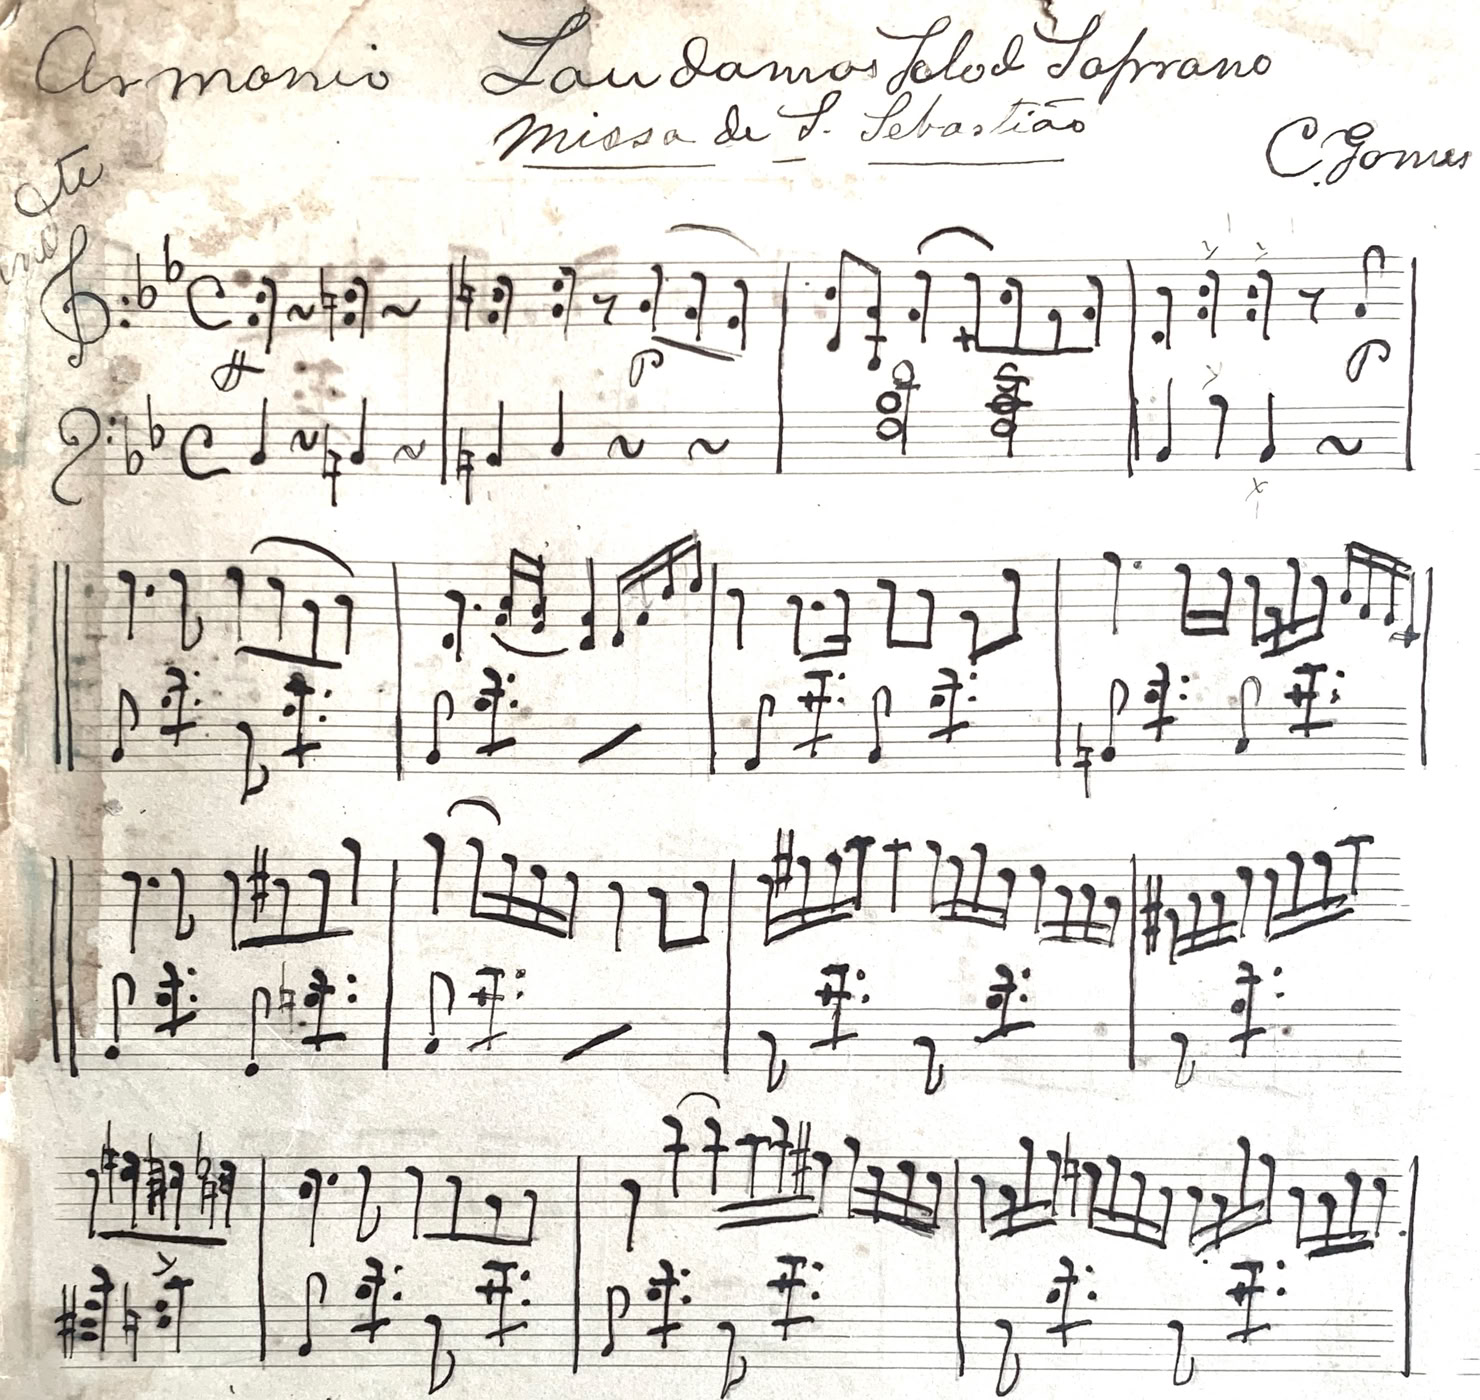 Armonio Laudamos Solo d Soprano
Missa de S. Sebastião
C. Gomes
P
P